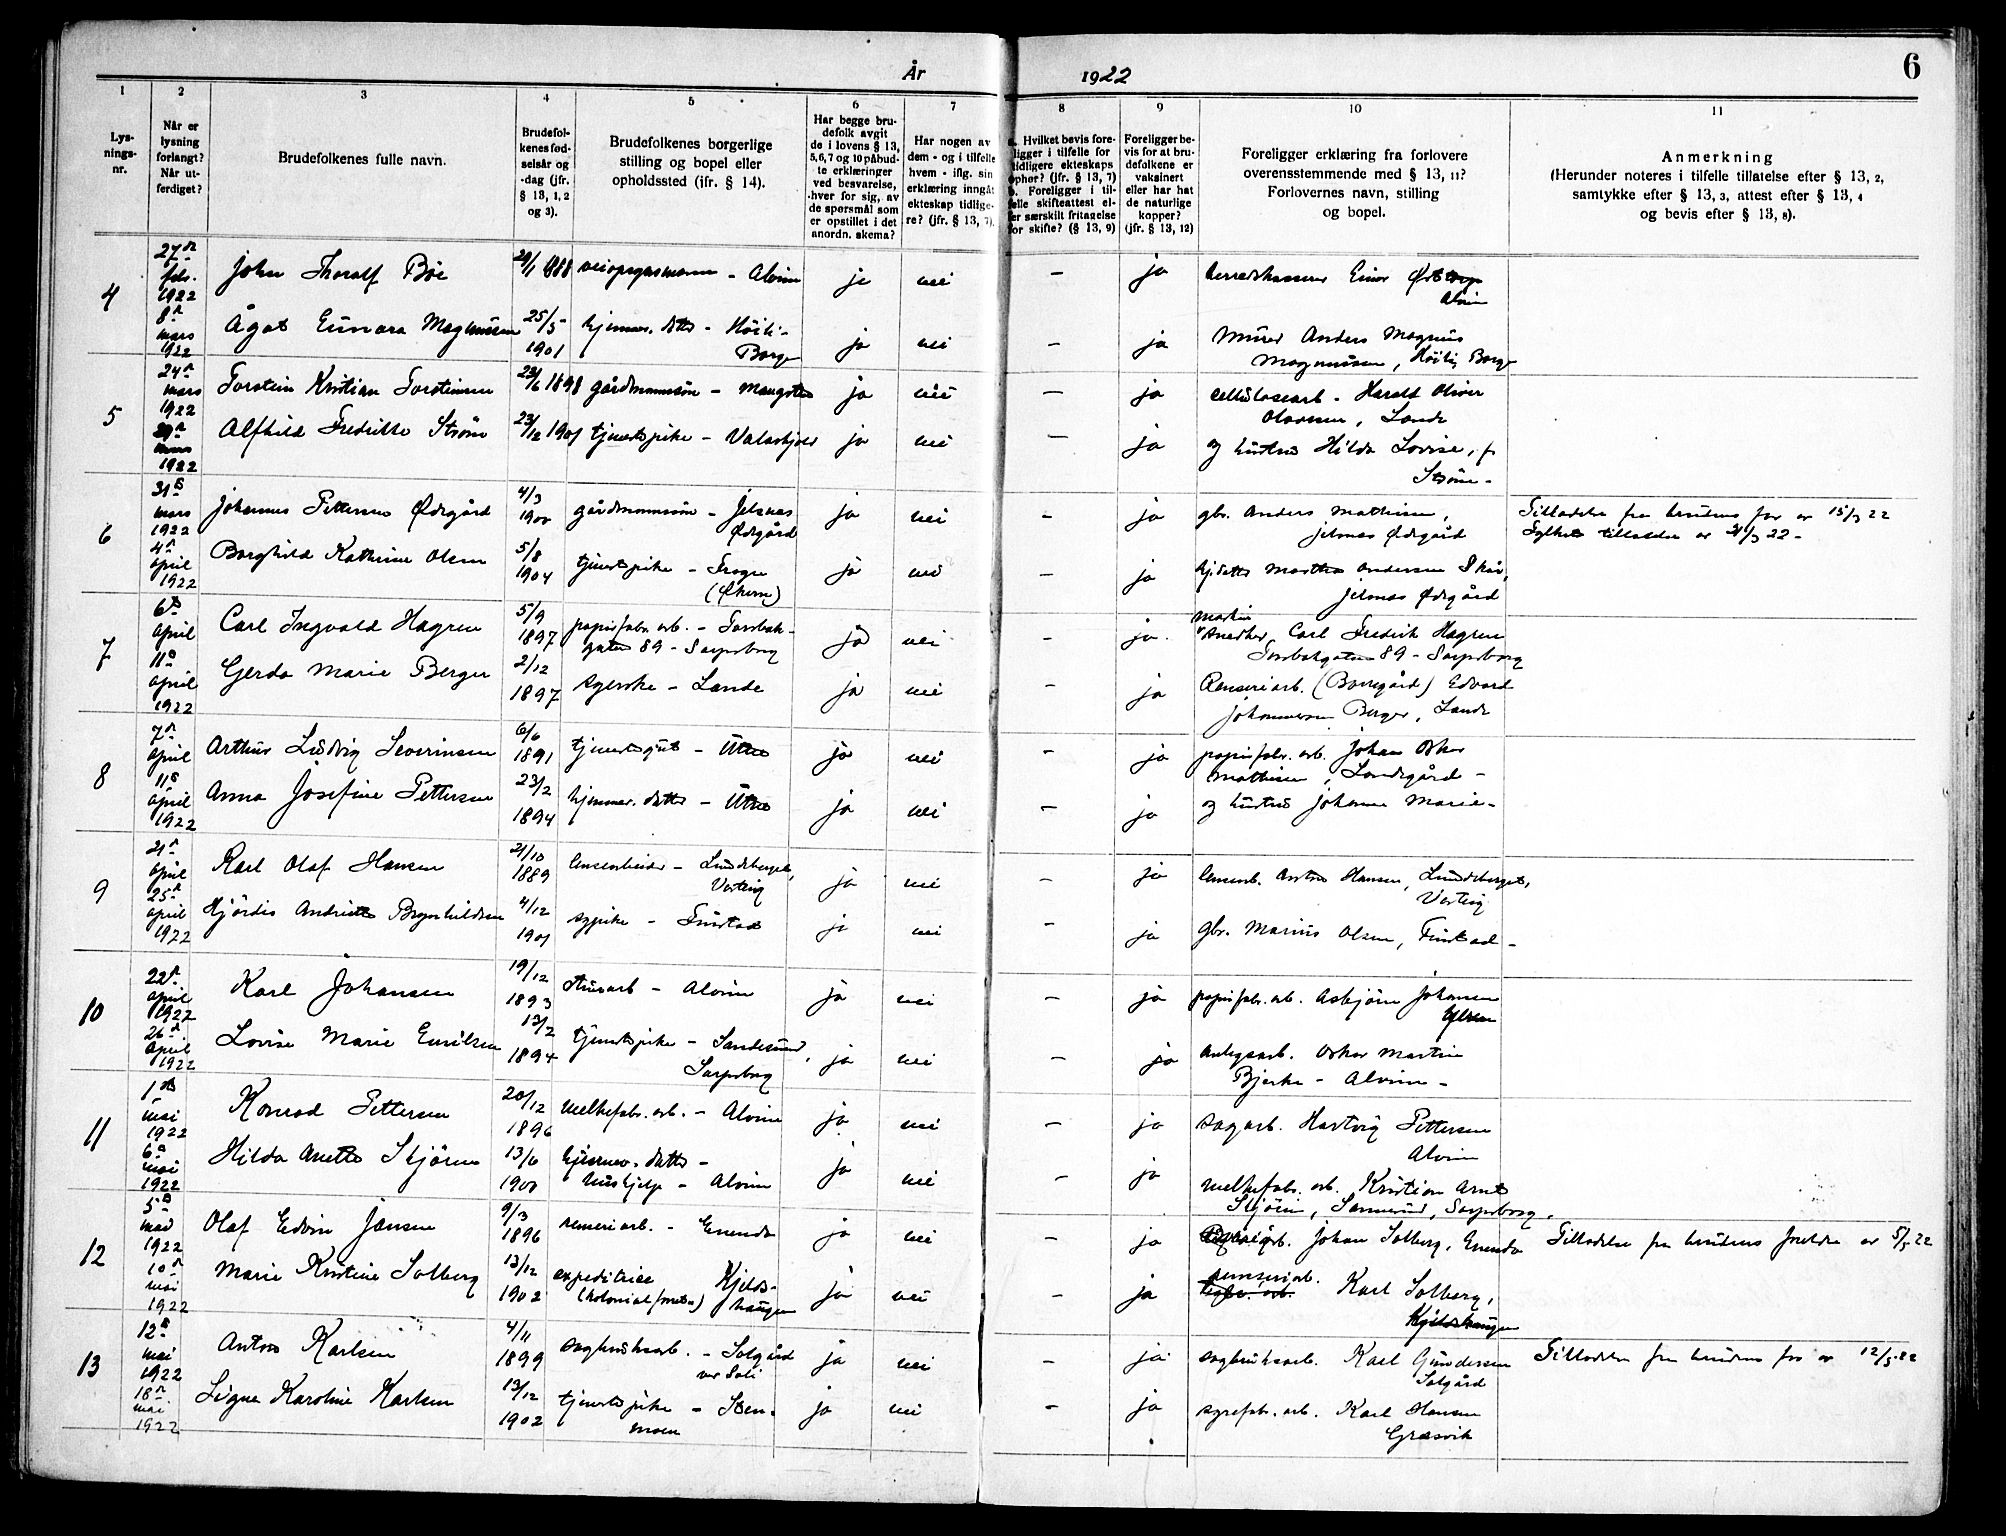 År 1922 6
1 2 3 4 5 6 7 8 9 10 11
Lys-
nings-
nr.
Når er
lysning
forlangt?
Når ut-
ferdiget?
Brudefolkenes fulle navn.
Brudefol-
kenes fød-
selsår og
-dag (jfr.
§ 13, 1, 2
og 3).
Brudefolkenes borgerlige
stilling og bopel eller
opholdssted (jfr. § 14).
Har begge bru-
defolk avgit
de i lovens § 13,
5,6,7 og 10 påbud-
te erklæringer
ved besvarelse,
hver for sig, av
de spørsmål som
er opstillet i det
anordn. skema?
Har nogen av
dem - og i tilfelle
hvem - iflg. sin
erklæring inngåt
ekteskap tidlige-
re? (jfr. § 13, 7).
a. Hvilket bevis fore-
ligger i tilfelle for
tidligere ekteskaps
ophør? (jfr. § 13, 7)
b. Foreligger i til-
felle skifteattest el-
ler særskilt fritagelse
for skifte? (§ 13, 9)
Foreligger be-
vis for at bru-
defolkene er
vaksinert
eller har hat
de naturlige
kopper?
(jfr. § 13, 12)
Foreligger erklæring fra forlovere
overensstemmende med § 13, 11?
Forlovernes navn, stilling
og bopel.
Anmerkning
(Herunder noteres i tilfelle tillatelse efter § 13, 2,
samtykke efter § 13, 3, attest efter § 13, 4
og bevis efter § 13, 8).
4 27de feb. 1922 John Thoralf Bøe 29/1 1888 – Alvim ja nei – ja Einar
Alvim
8de mars 1922 Ågot Gunara Magnussen 25/5 1901 hjemmev. datter – Høili – Borge ja nei – ja Murer Anders Magnus
Magnussen, Høili, Borge
5 24de mars 1922 Torstein Kristian Torsteinsen 23/6 1898 gårdmannsøn – ja nei – ja cellulosearb. Harald Oliver
Olavesen, Lande
1922 Alfhild Fredrikke Strøm 23/12 1901 tjenestepike – Valaskjold ja nei – ja og hustru Hilda Lovise, f.
Strøm –
6 31te mars 1922 Johannes Pettersen Ødegård 4/3 1900 gårdmannsøn – Jelsnes
Ødegård ja nei – ja gbr. Anders Mathisen,
Jelsnes Ødegård Tilladelse fra brudens far av 15/3 22
4de april 1922 Borghild Kathrine Olsen 5/8 1904 tjenestepike – Frogn
ja nei – ja Andersen
Jelsnes Ødegård Fylkets tilladelse av /3 22 –
7 6te april 1922 Carl Ingvald Hagren 5/9 1897 papirfabr. arb. – Torsbak-
gaten 89 – Sarpsborg ja nei – ja Snedker Carl Fredrik Hagren
Torsbakgaten 89 – Sarpsborg
11te april 1922 Gerda Marie Berger 2/12 1897 syerske – Lande ja nei – ja Renseriarb. (Borregård) Edvard
Johannessen Berger, Lande
8 7de april 1922 Arthur Ludvig Severinsen 6/6 1891 tjenestegut – Utne ja nei – ja papirfabr. arb. Johan Oskar
Mathisen, Landegård –
11te april 1922 Anna Josefine Pettersen 23/2 1894 hjemmev. datter – Utne ja nei – ja og hustru Johanne Marie –
9 21de april 1922 Karl Olaf Hansen 21/10 1889 lensearbeider – Lundeberget,
Varteig ja nei – ja lensearb. Anton Hansen, Lundeberget,
Varteig
25de april 1922 Hjördis Andrette Brynhildsen 4/12 1901 sypike – Furstad ja nei – ja gbr. Marius Olsen,
10 22de april 1922 Karl Johansen 19/12 1893 – Alvim ja nei – ja papirfabr. arb. Asbjörn Johansen
26de april 1922 Lovise Marie Emilsen 13/2 1894 tjenestepike – Sandesund,
Sarpsborg ja nei – ja anlegsarb. Oskar Martin
Bjerke – Alvim –
11 1ste mai 1922 Konrad Pettersen 20/12 1896 melkefabr. arb. – Alvim ja nei – ja sagarb. Hartvig Pettersen
Alvim
6te mai 1922 Hilda Anette Skjören 13/6 1900 hjemmev. datter –
hushjelp – Alvim ja nei – ja melkefabr. arb. Kristian Arnt
Skjören, Sannesund, Sarpsborg.
12 5te mai 1922 Olaf Edvin Jansen 9/3 1896 renseriarb. – Enenda ja nei – ja Johan Solberg, Enenda Tilladelse fra brudens foreldre av 5/5 22
10de mai 1922 Marie Kristine Solberg 13/12 1902 expeditrice
(kolonialforretn.) Kjelds-
haugen ja nei – ja renseriarb. Karl Solberg,
Kjeldshaugen
13 12te mai 1922 Anton Karlsen 4/11 1899 sagbruksarb. – Solgård
ver Soli ja nei – ja sagbruksarb. Karl Gundersen
Solgård Tilladelse fra brudens far av 12/5 22
18de mai 1922 Signe Karoline Karlsen 13/12 1902 tjenestepike – Sten-
moen ja nei – ja syrefabr. arb. Karl Hansen
Græsvik